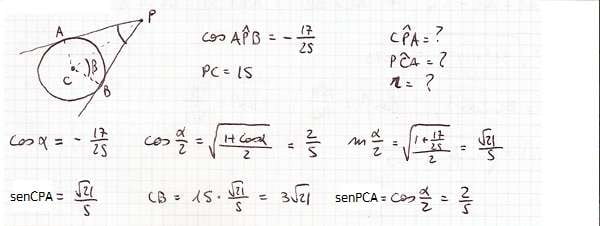 A
P
C
β
B
cos AP̂B = - 17/25
PC = 15
CP̂A = ?
PĈA = ?
r = ?
cos α = - 17/25
cos α/2 = √((1 + cos α)/2) = 2/5
sin α/2 = √((1 + 17/25)/2) = √21/5
senCPA = √21/5
CB = 15 · √21/5 = 3√21
senPCA = cos α/2 = 2/5